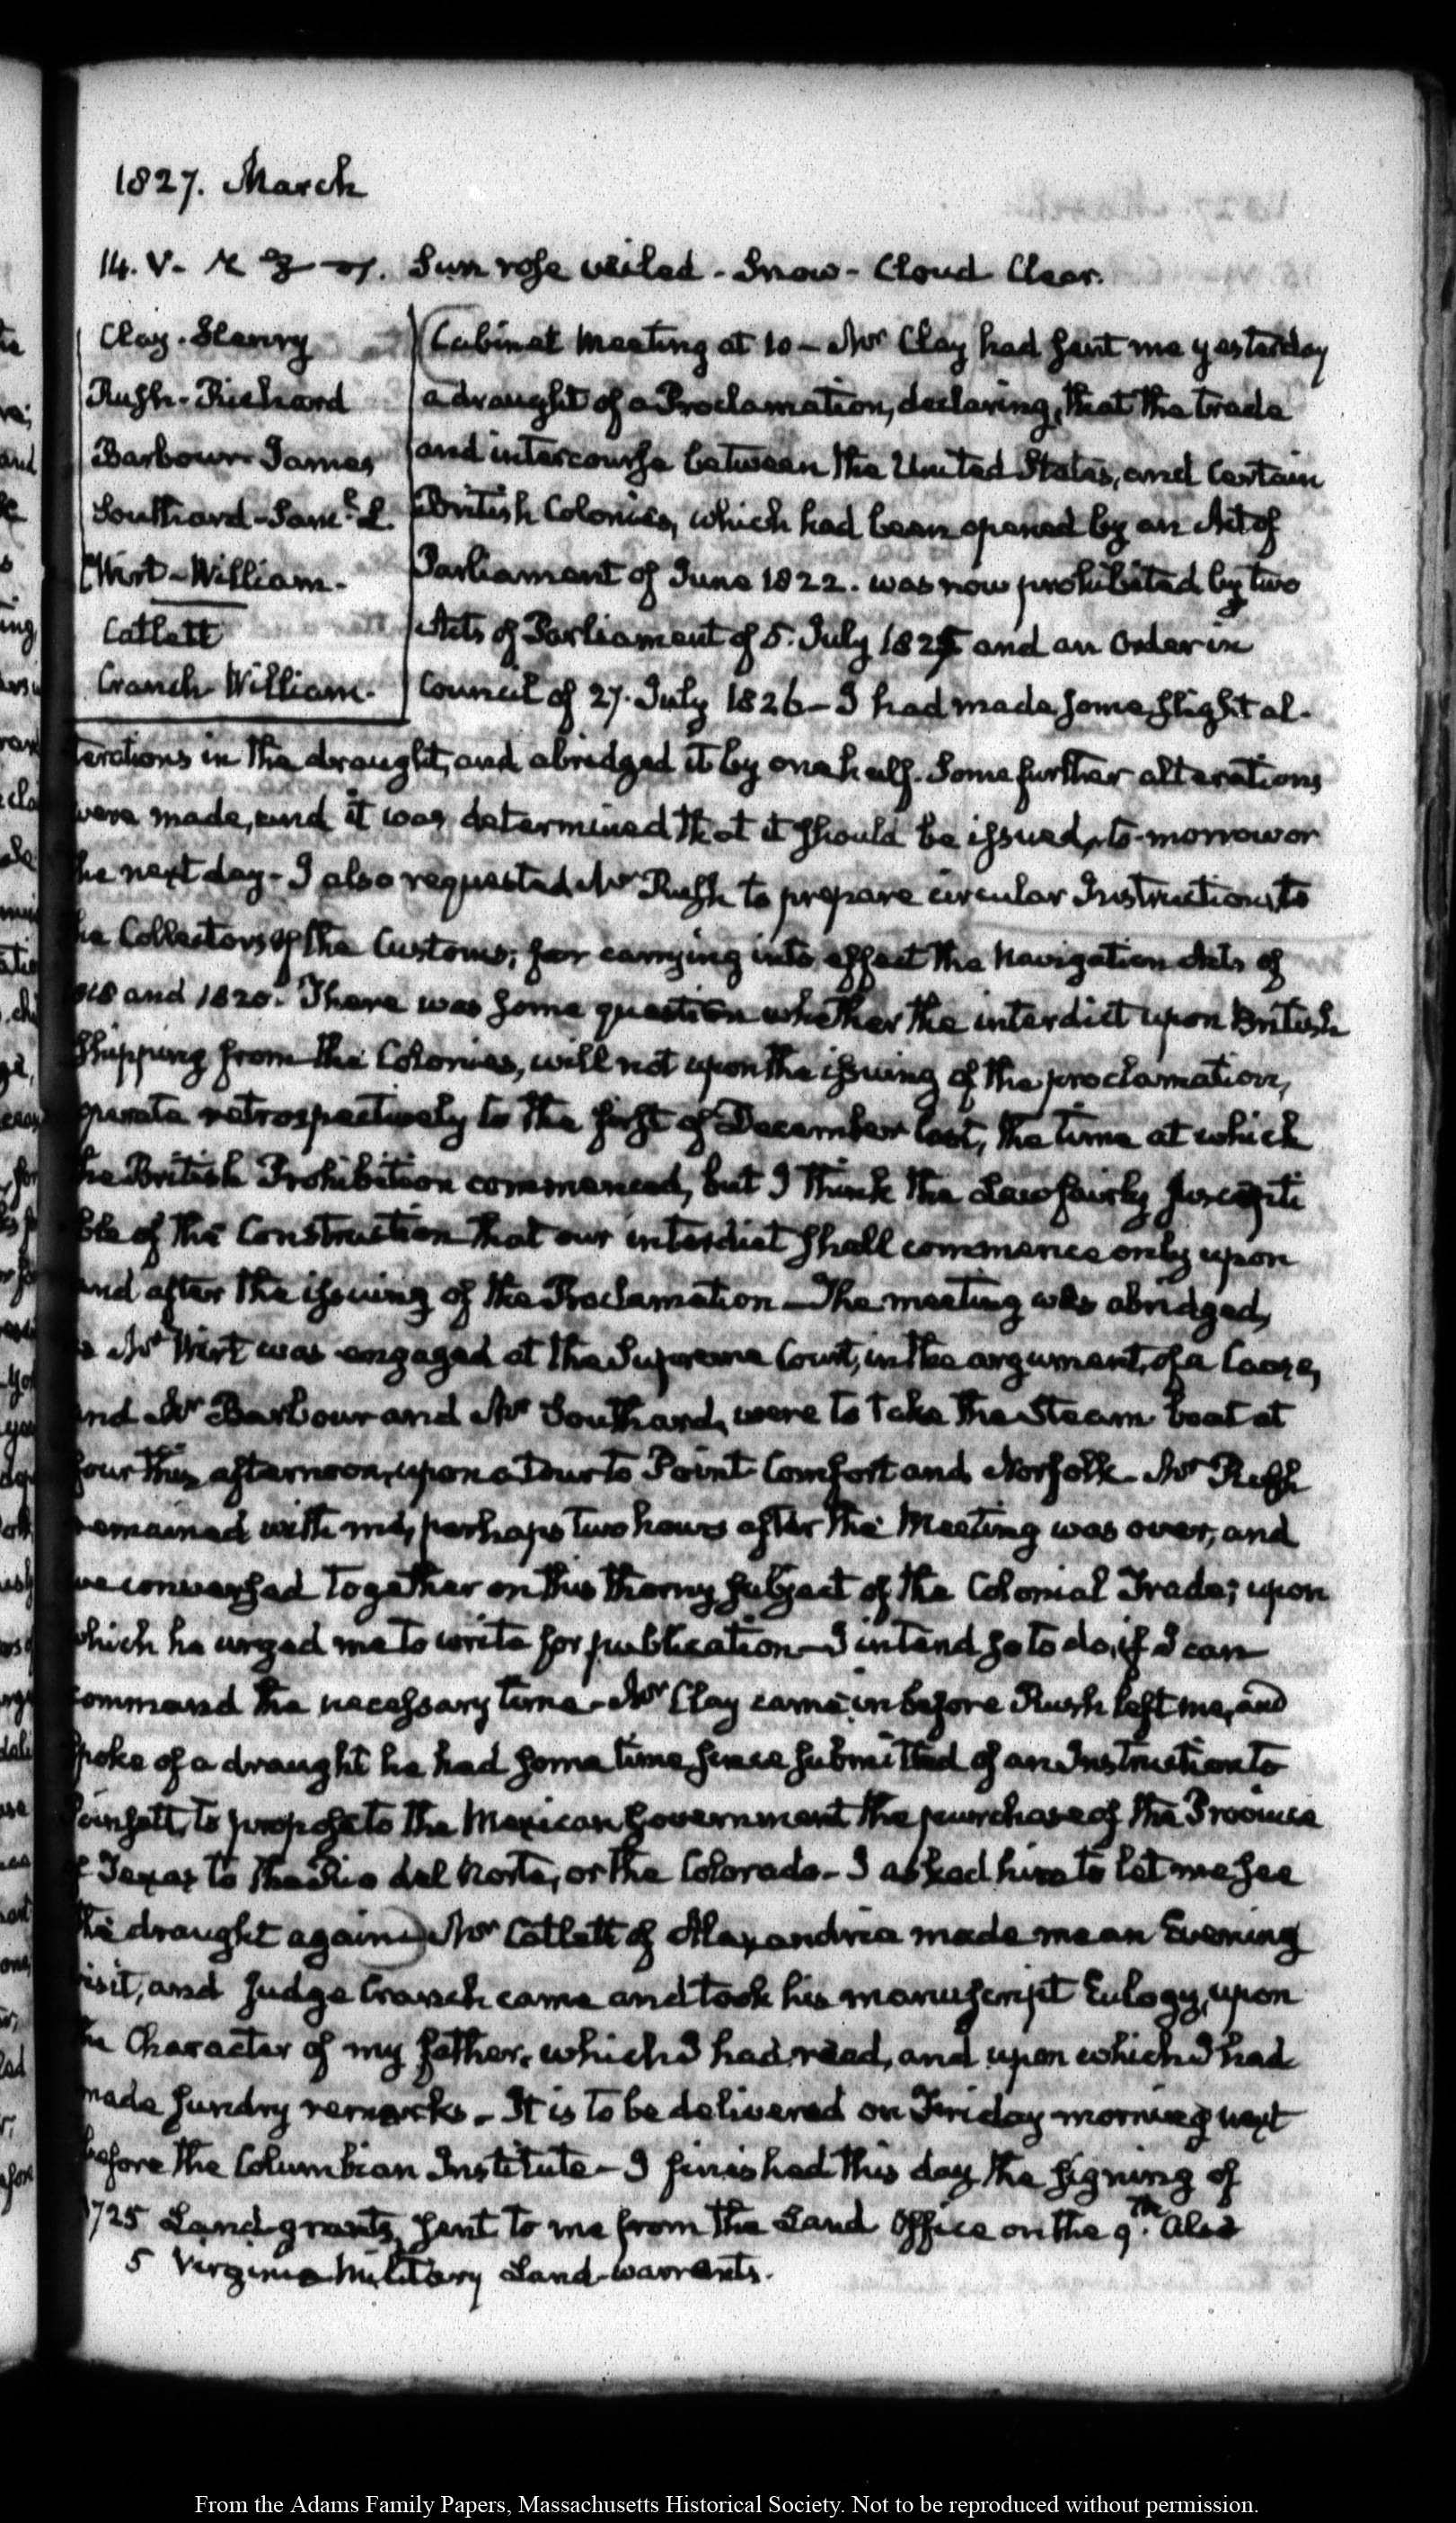 1827. March
14. V. Sun rose veiled - Snow - Cloud Clear.
Clay. Henry
Rush. Richard
Barbour James
Southard. Saml. L.
Wirt - William.
Catlett
Cranch William.
Cabinet Meeting at 10 - Mr Clay had sent me yesterday
a draught of a Proclamation, declaring, that the trade
and intercourse between the United States, and Certain
British Colonies, which had been opened by an Act of
Parliament of June 1822. was now prohibited by two
Acts of Parliament of 5. July 1825 and an Order in
Council of 27. July 1826 - I had made some slight al-
terations in the draught, and abridged it by one half. Some further alterations
were made, and it was determined that it should be issued, to-morrow or
the next day - I also requested Mr Rush to prepare circular Instructions, to
the Collectors of the Customs; for carrying into effect the Navigation Acts of
1818 and 1820. There was some question whether the interdict upon British
Shipping from the Colonies, will not upon the issuing of the proclamation,
operate retrospectively to the first of December last, the time at which
the British Prohibition commenced, but I think the Law fairly suscepti
ble of the Construction that our interdict shall commence only upon
and after the issuing of the Proclamation - The meeting was abridged,
as Mr Wirt was engaged at the Supreme Court, in the argument, of a Cause,
and Mr Barbour and Mr Southard, were to take the Steam boat at
four this afternoon, upon a tour to Point Comfort and Norfolk - Mr Rush
remained with me, perhaps two hours after the Meeting was over, and
we conversed together on this thorny subject of the Colonial Trade; upon
which he urged me to write for publication - I intend so to do, if I can
command the necessary time - Mr Clay came in before Rush left me, and
spoke of a draught he had some time since submitted of an Instruction to
Poinsett, to propose to the Mexican Government the purchase of the Province
of Texas to the Rio del Norte, or the Colorado - I asked him to let me see
the draught again) Mr Catlett of Alexandria made me an Evening
visit, and Judge Cranch came and took his manuscript Eulogy, upon
the Character of my father, which I had read, and upon which I had
made sundry remarks - It is to be delivered on Friday morning next
before the Columbian Institute - I finished this day the signing of
1725 Land-grants, sent to me from the Land Office on the 9th. Also
5 Virginia Military Land-warrants.
From the Adams Family Papers, Massachusetts Historical Society. Not to be reproduced without permission.